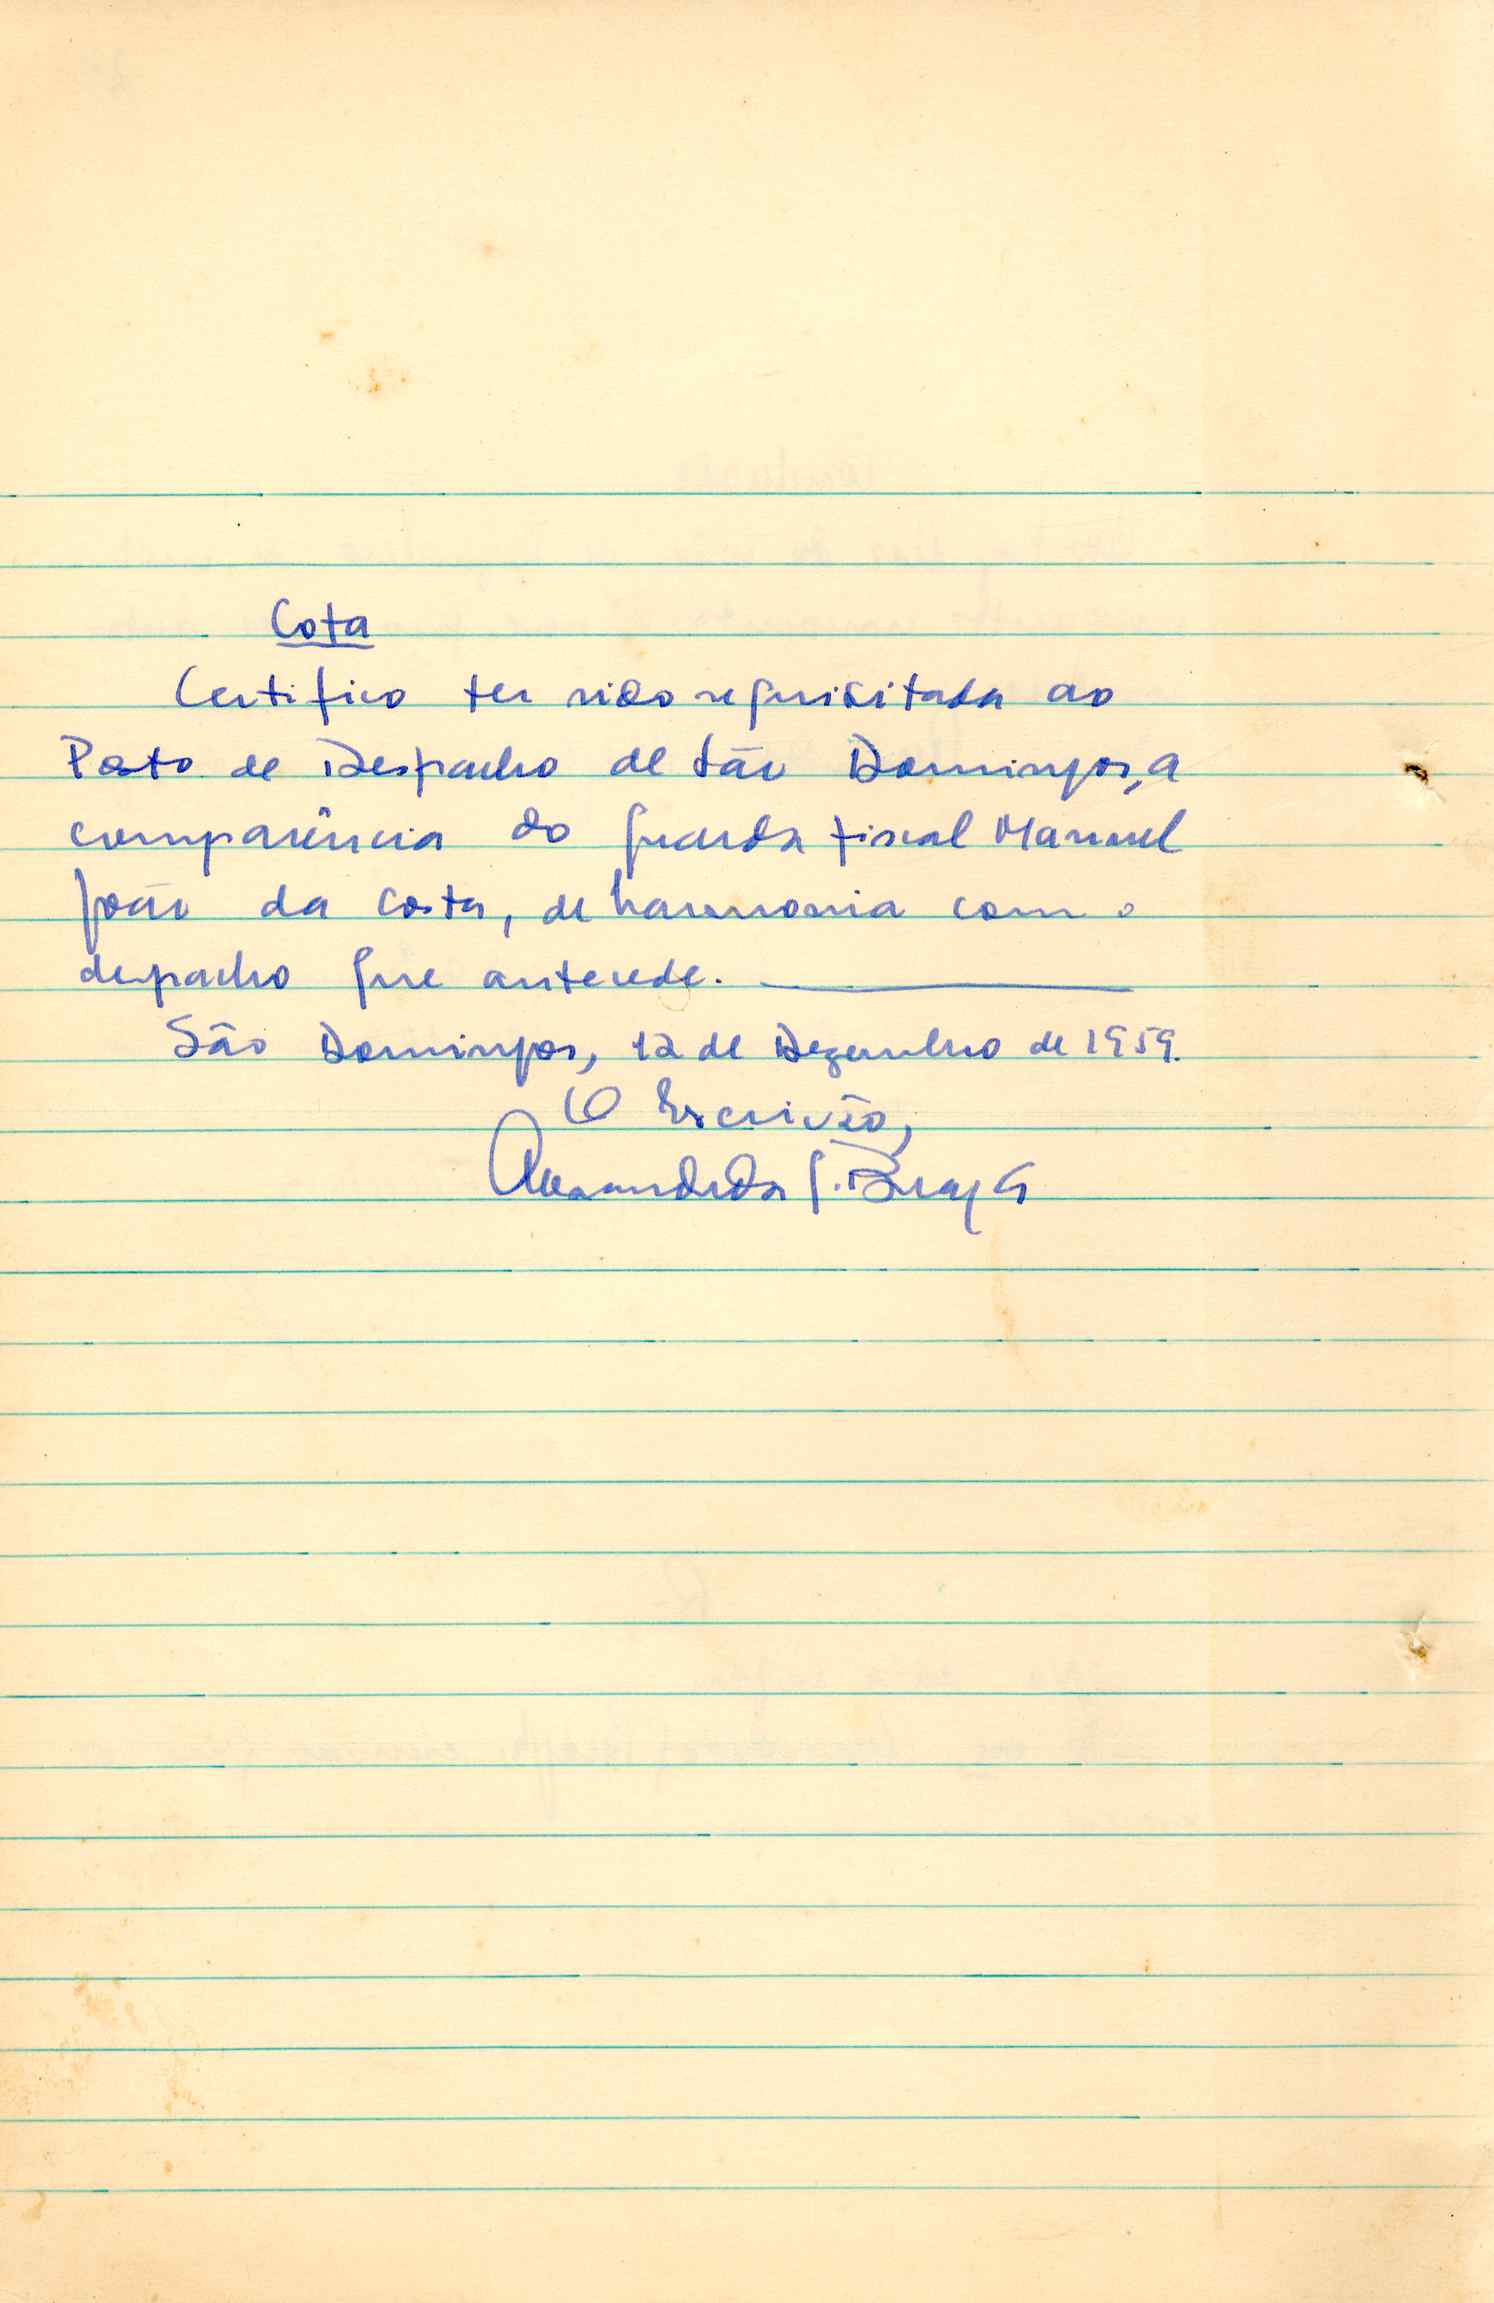 Cota
Certifico ter sido requisitada ao
Posto de Despacho de São Domingos, a
comparência do guarda fiscal Manuel
João da Costa, de harmonia com o
despacho que antecede.
São Domingos, 12 de Dezembro de 1959.
O Escrivão,